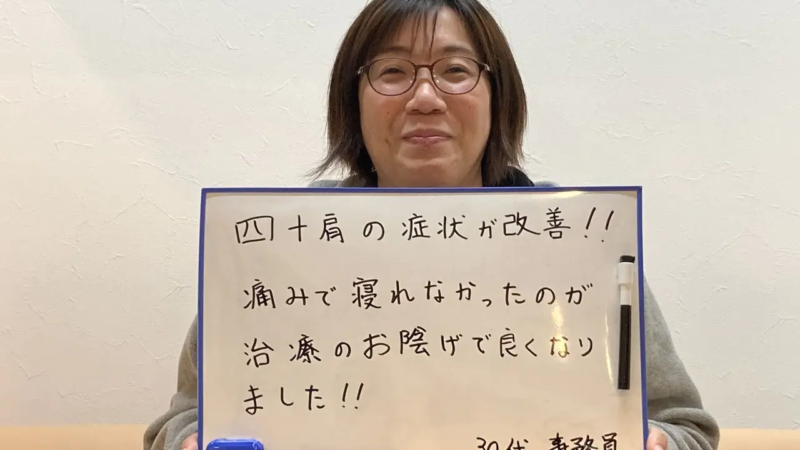 四十肩の症状が改善!!
痛みで寝れなかったのが
治療のお陰げで良くなり
ました!!
30代 事務員